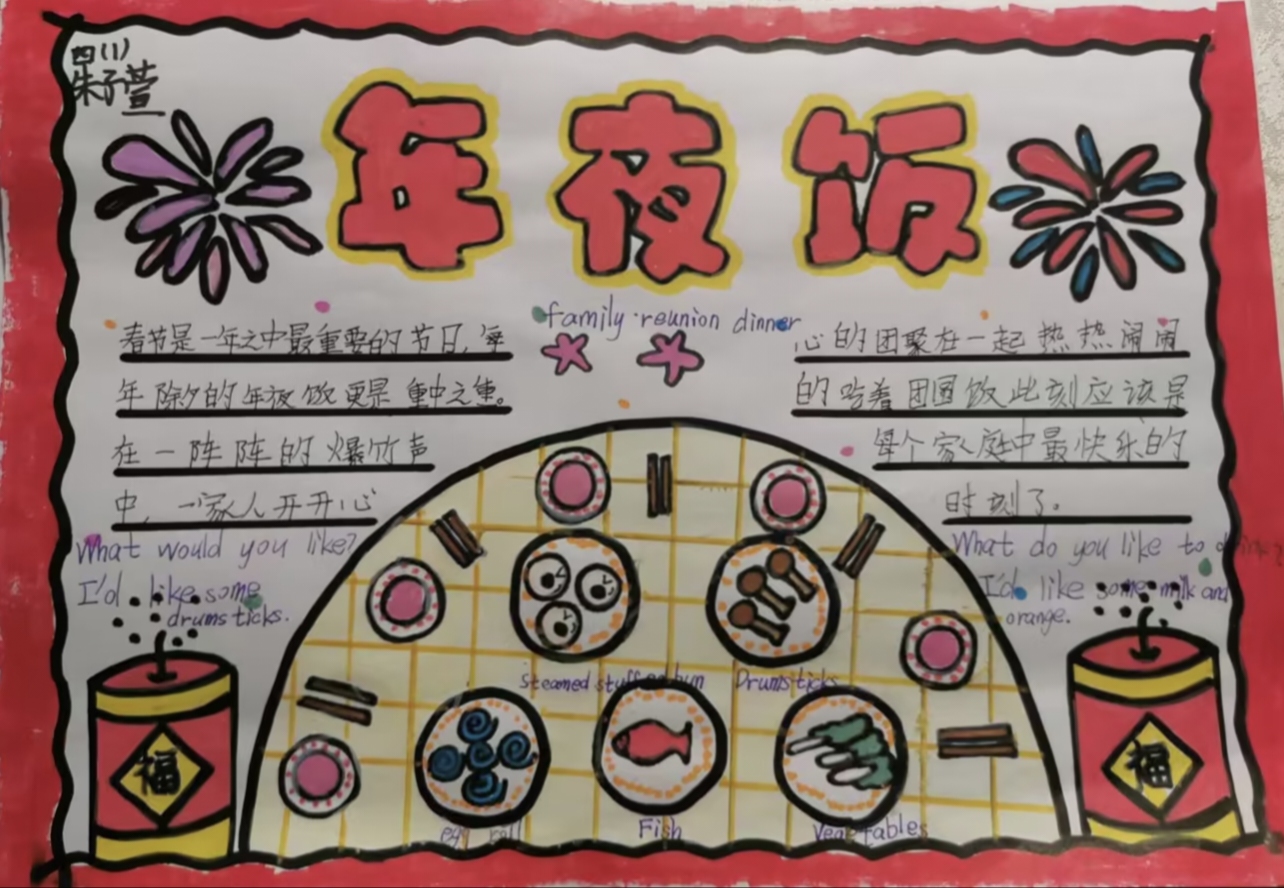 四(1)
朱子萱
年夜饭
family reunion dinner
春节是一年之中最重要的节日,每
年除夕的年夜饭更是重中之重。
在一阵阵的爆竹声
中,一家人开开心
心的团聚在一起热热闹闹
的吃着团圆饭此刻应该是
每个家庭中最快乐的
时刻了。
What would you like?
I'd like some
drumsticks.
What do you like to
I'd like some milk and
orange.
Steamed stuffed bun
Drumsticks
egg roll
Fish
Vegetables
福
福